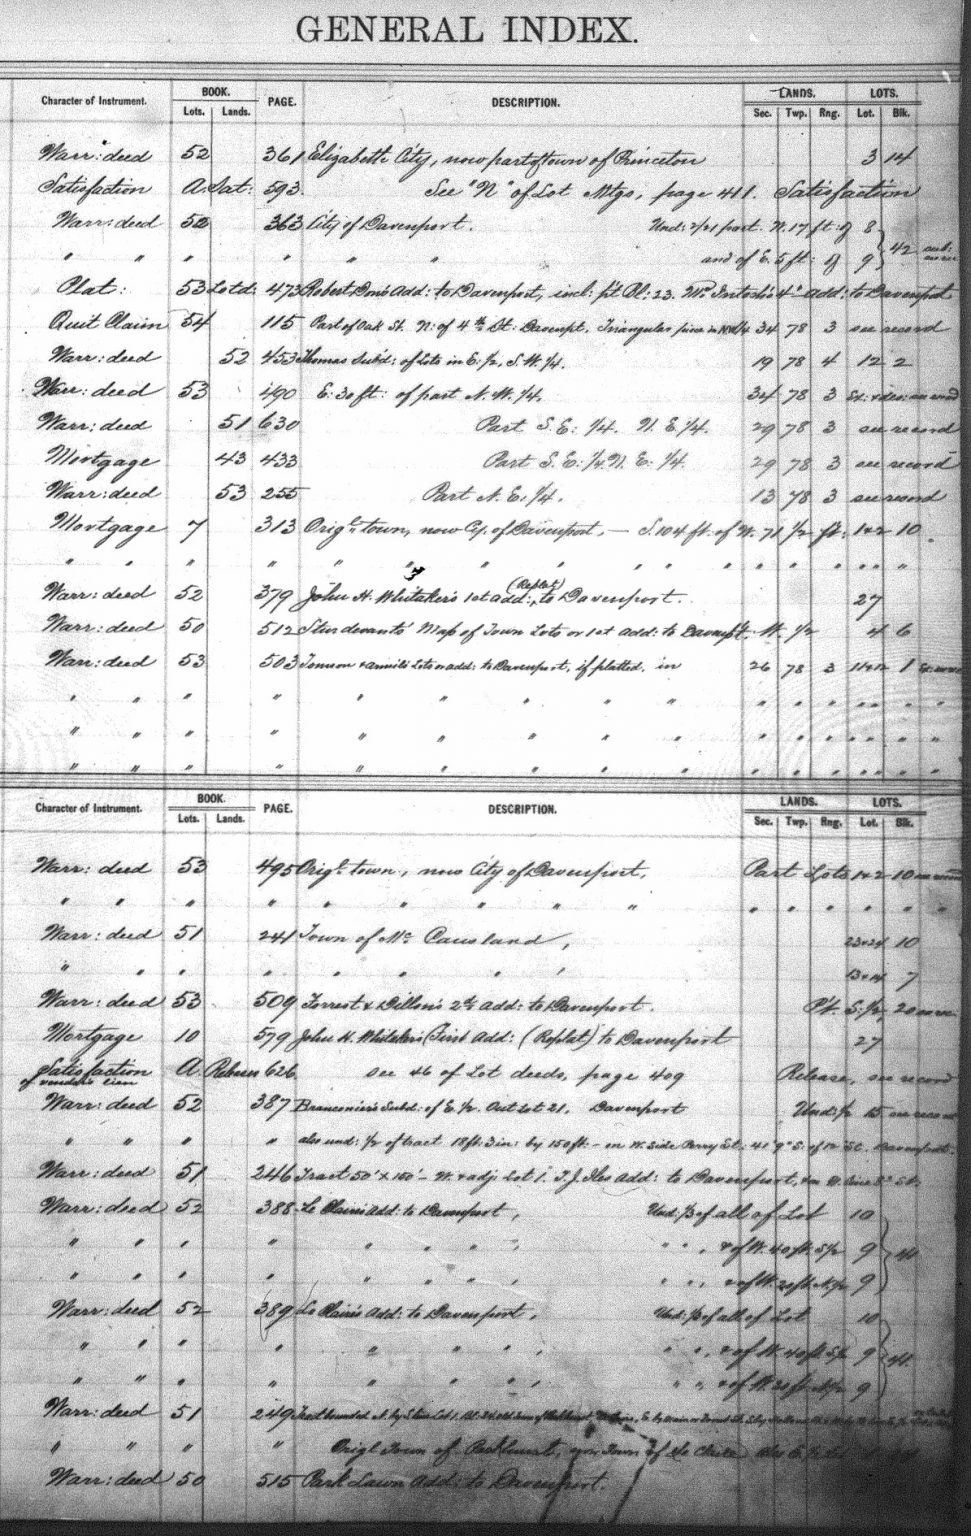 GENERAL INDEX.
Character of Instrument. BOOK. PAGE. DESCRIPTION. LANDS. LOTS.
Lots. Lands. Sec. Twp. Rng. Lot. Blk.
Warr: deed 52 361 Elizabeth City, now part of town of Princeton 3 14
Satisfaction A. Sat: 593 See "N" of Lot Mtgs, page 411. Satisfaction
Warr: deed 52 363 City of Davenport. Und: 2/21 part. N. 17 ft: of 8
" " " " " " " and of E. 5 ft: of 9 42
Plat: 53 Lotd: 473 Robert Don's Add: to Davenport, incl: pt Bl: 23. McIntosh's 4th Add: to Davenport
Quit Claim 54 115 Part of Oak St. N: of 4th St: Davenpt, Triangular piece in NW1/4 34 78 3 see record
Warr: deed 52 453 Thomas Subd: of Lots in E. 1/2, S.W. 1/4. 19 78 4 12 2
Warr: deed 53 490 E. 30 ft: of part N.W. 1/4 34 78 3
Warr: deed 51 630 Part S.E. 1/4. N.E. 1/4. 29 78 3 see record
Mortgage 43 433 Part S.E. 1/4. N.E. 1/4. 29 78 3 see record
Warr: deed 53 255 Part N.E. 1/4. 13 78 3 see record
Mortgage 7 313 Origl. town, now Cy. of Davenport, — S. 104 ft. of W. 71 1/2 ft: 1+2 10
" " " " " " " " " " " " "
Warr: deed 52 379 John H. Whitaker's 1st add:, (Replat) to Davenport. 27
Warr: deed 50 512 Sturdevants' Map of Town Lots or 1st Add: to Davenpt. W. 1/2 4 6
Warr: deed 53 503 Lots or add: to Davenport, if platted, in 26 78 3 11+12 1
" " " " " " " " " " " " " " "
" " " " " " " " " " " " " " "
" " " " " " " " " " " " " " "
Character of Instrument. BOOK. PAGE. DESCRIPTION. LANDS. LOTS.
Lots. Lands. Sec. Twp. Rng. Lot. Blk.
Warr: deed 53 495 Origl. town, now City of Davenport, Part Lots 1+2 10
" " " " " " " " " " " " " " "
Warr: deed 51 241 Town of McCausland, 23+24 10
" " " " " " " " 13+14 7
Warr: deed 53 509 Forrest & Dillon's 2d Add: to Davenport. Pt. S. 1/2, 20
Mortgage 10 579 John H. Whitaker's First Add: (Replat) to Davenport 27
Satisfaction A. 626 see 46 of Lot deeds, page 409 Release, see record
of vendor's lien
Warr: deed 52 387 Subd: of E. 1/2. Out Lot 21. Davenport Und: 1/2 15 see record
" " " " also und: 1/2 of tract 18 ft: 3 in: by 150 ft: - on W. Side Perry St: 41' 9" S. of St. Davenport.
Warr: deed 51 246 Tract 50' x 150' - W. & adj: Lot 1. Add: to Davenport,
Warr: deed 52 388 Le Claire's Add: to Davenport, Und: 1/3 of all of Lot 10
" " " " " " " " " " " & of W. 40 ft. S 1/2 9
" " " " " " " " " " " & of W. 20 ft. N. 1/2 9
Warr: deed 52 389 Le Claire's Add: to Davenport, Und: 1/3 of all of Lot 10
" " " " " " " " " " " & of W. 40 ft. S 1/2 9
" " " " " " " " " " " & of W. 20 ft. N. 1/2 9
Warr: deed 51 249 Tract bounded N. by
" " " " Origl Town of Parkhurst, now Town of Le Claire
Warr: deed 50 515 Park Lawn Add: to Davenport.